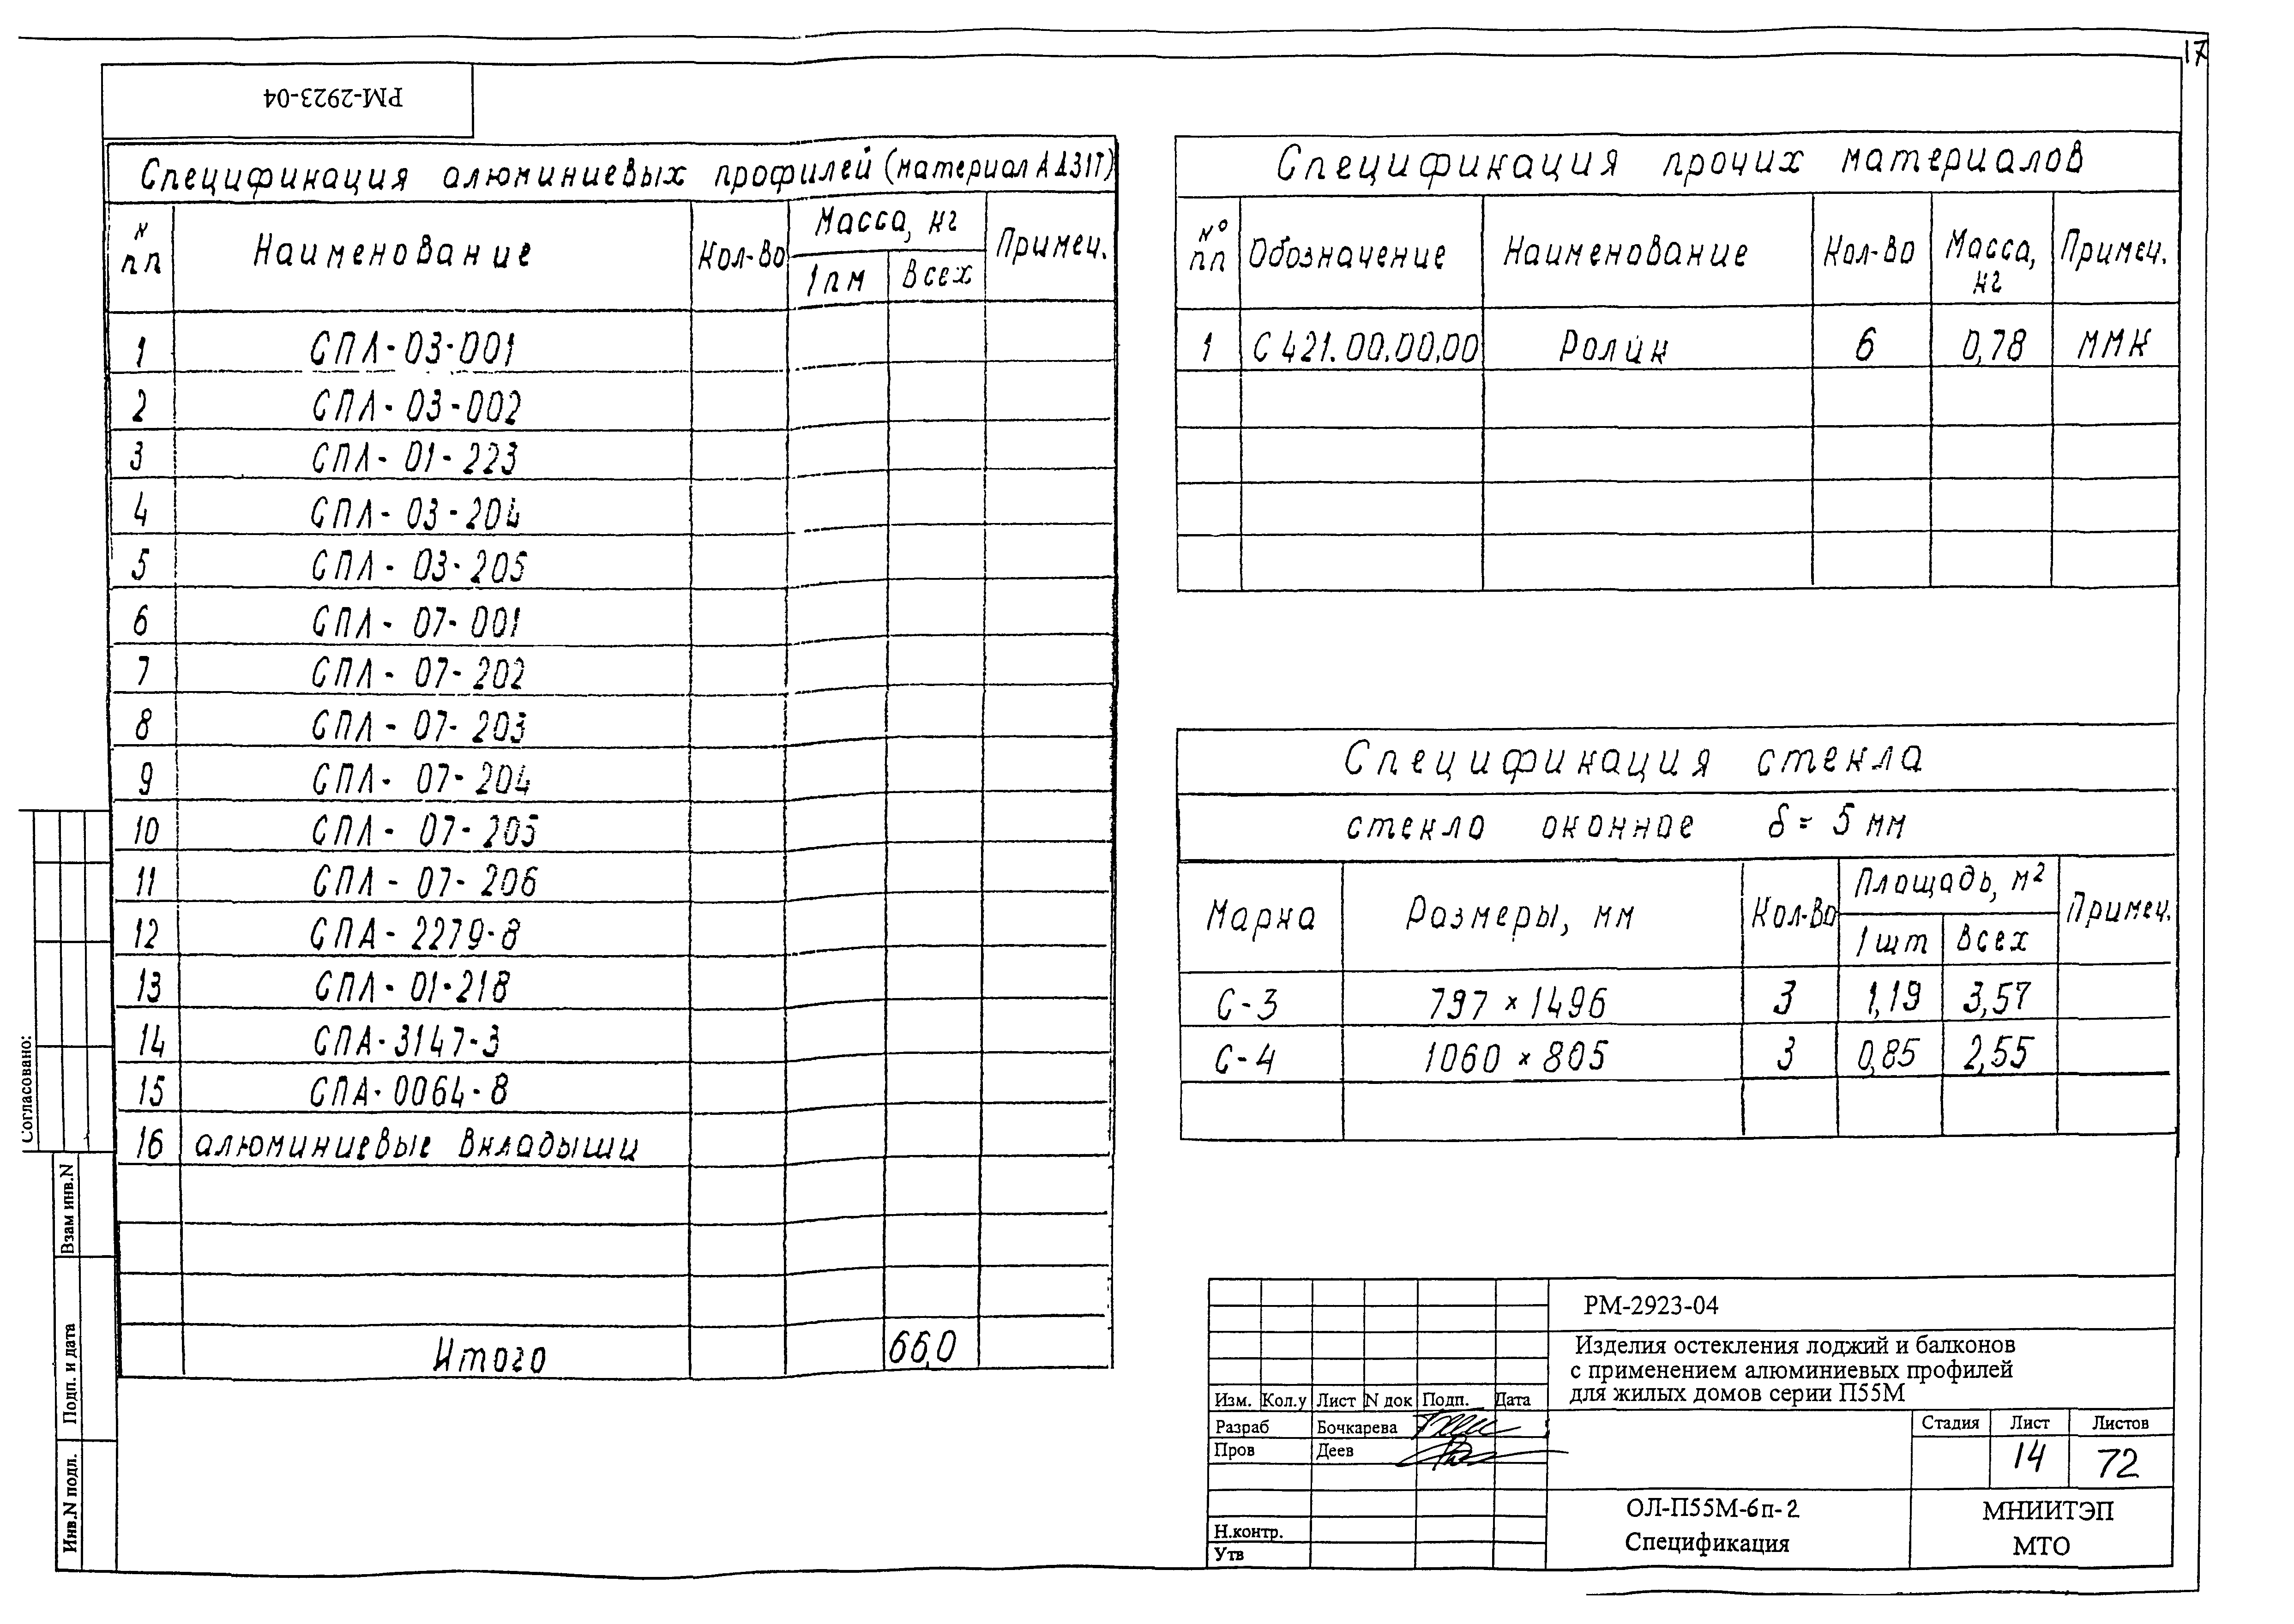 17
РМ-2923-04
Спецификация алюминиевых профилей (материал АД31Т)
N пп Наименование Кол-во Масса, кг Примеч.
1пм Всех
1 СПЛ-03-001
2 СПЛ-03-002
3 СПЛ-01-223
4 СПЛ-03-204
5 СПЛ-03-205
6 СПЛ-07-001
7 СПЛ-07-202
8 СПЛ-07-203
9 СПЛ-07-204
10 СПЛ-07-205
11 СПЛ-07-206
12 СПА-2279-8
13 СПЛ-01-218
14 СПА-3147-3
15 СПА-0064-8
16 алюминиевые вкладыши
Итого 66,0
Спецификация прочих материалов
№ пп Обозначение Наименование Кол-во Масса, кг Примеч.
1 С421.00.00.00 Ролик 6 0,78 ММК
Спецификация стекла
стекло оконное δ = 5 мм
Марка Размеры, мм Кол-во Площадь, м² Примеч.
1шт Всех
С-3 797 × 1496 3 1,19 3,57
С-4 1060 × 805 3 0,85 2,55
Согласовано:
Взам инв.N
Подп. и дата
Инв.N подл.
РМ-2923-04
Изделия остекления лоджий и балконов
с применением алюминиевых профилей
для жилых домов серии П55М
Изм. Кол.у Лист N док Подп. Дата
Разраб Бочкарева
Пров Деев
Н.контр.
Утв
Стадия Лист Листов
14 72
ОЛ-П55М-6п-2
Спецификация
МНИИТЭП
МТО